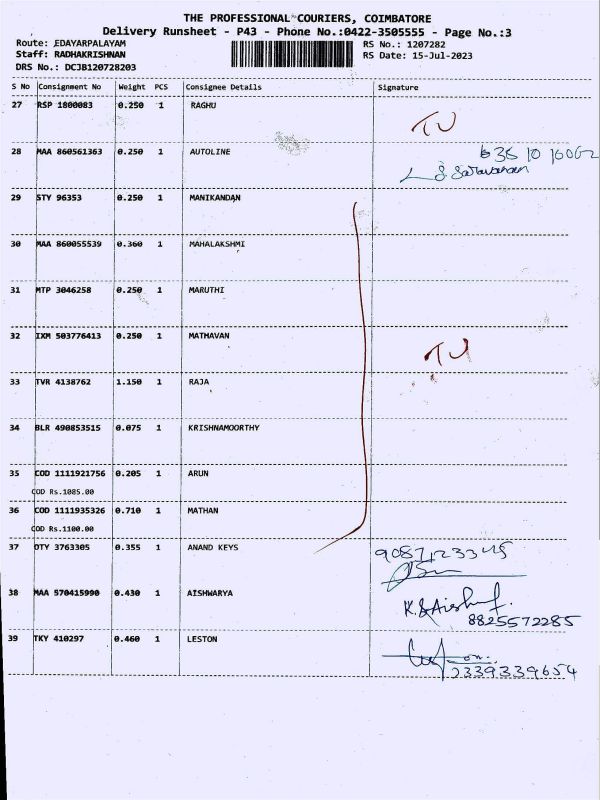 THE PROFESSIONAL COURIERS, COIMBATORE
Delivery Runsheet - P43 - Phone No.:0422-3505555 - Page No.:3
Route: EDAYARPALAYAM RS No.: 1207282
Staff: RADHAKRISHNAN RS Date: 15-Jul-2023
DRS No.: DCJB120728203
S No Consignment No Weight PCS Consignee Details Signature
27 RSP 1800083 0.250 1 RAGHU
TU
28 MAA 860561363 0.250 1 AUTOLINE
S. Saravanan
29 STY 96353 0.250 1 MANIKANDAN
30 MAA 860055539 0.360 1 MAHALAKSHMI
31 MTP 3046258 0.250 1 MARUTHI
32 IXM 503776413 0.250 1 MATHAVAN
TU
33 TVR 4138762 1.150 1 RAJA
34 BLR 490853515 0.075 1 KRISHNAMOORTHY
35 COD 1111921756 0.205 1 ARUN
COD Rs.1085.00
36 COD 1111935326 0.710 1 MATHAN
COD Rs.1100.00
37 OTY 3763305 0.355 1 ANAND KEYS
38 MAA 570415990 0.430 1 AISHWARYA
8825572285
39 TKY 410297 0.460 1 LESTON